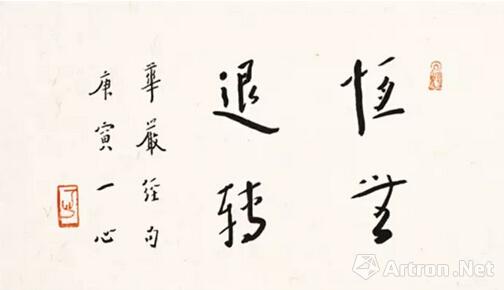 恆無
退轉
華嚴經句
庚寅一心
Artron.Net